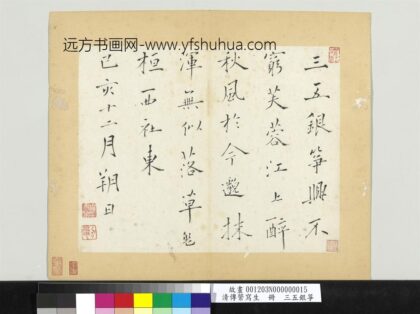 远方书画网- www.yfshuhua.com
三五銀箏興不
窮芙蓉江上醉
秋風於今抹
渾無似落草
桓西社東
己亥十二月朔日
故畫 001203N000000015
清傳綮寫生 冊 三五銀箏